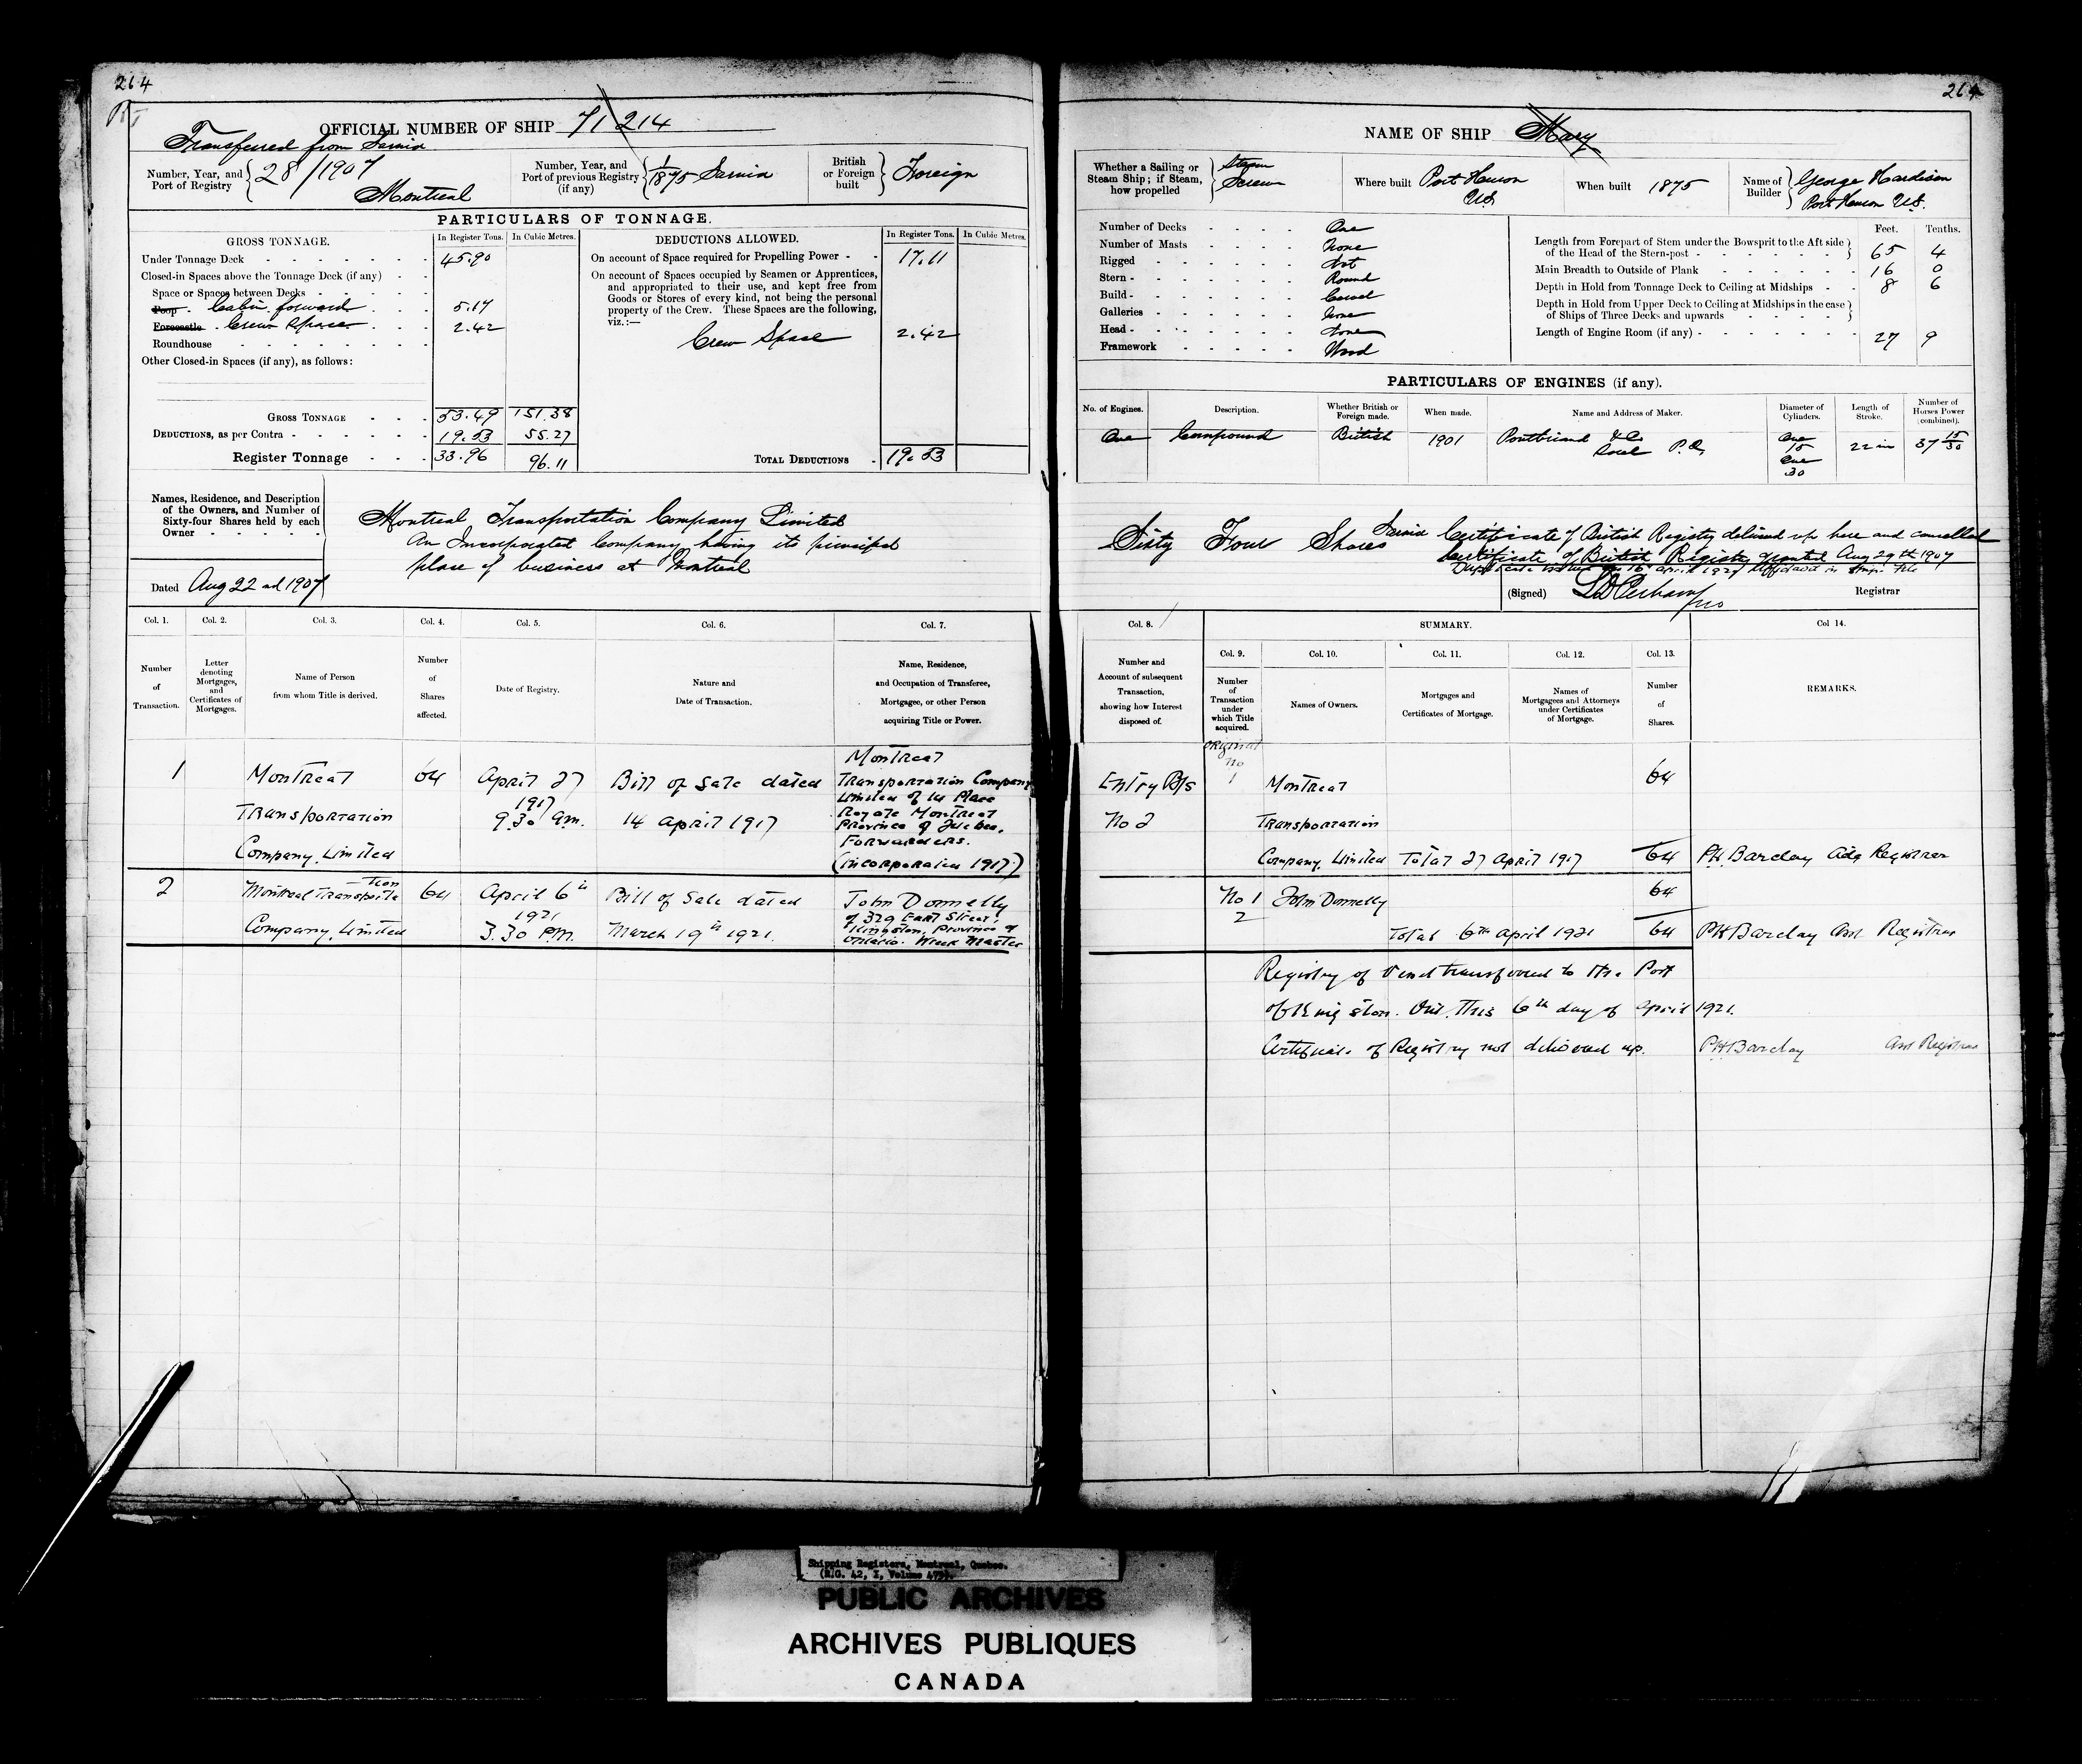 264
OFFICIAL NUMBER OF SHIP 71214
Transferred from Sarnia
Number, Year, and Port of Registry 28/1907 Montreal
Number, Year, and Port of previous Registry (if any) 1/1875 Sarnia
British or Foreign built Foreign
PARTICULARS OF TONNAGE.
GROSS TONNAGE. In Register Tons. In Cubic Metres.
Under Tonnage Deck 45.90
Closed-in Spaces above the Tonnage Deck (if any)
Space or Spaces between Decks
Poop Cabin forward 5.17
Forecastle Crew Space 2.42
Roundhouse
Other Closed-in Spaces (if any), as follows:
GROSS TONNAGE 53.49 151.38
DEDUCTIONS, as per Contra 19.53 55.27
Register Tonnage 33.96 96.11
DEDUCTIONS ALLOWED. In Register Tons. In Cubic Metres.
On account of Space required for Propelling Power 17.11
On account of Spaces occupied by Seamen or Apprentices,
and appropriated to their use, and kept free from
Goods or Stores of every kind, not being the personal
property of the Crew. These Spaces are the following,
viz.:—
Crew Space 2.42
TOTAL DEDUCTIONS 19.53
Names, Residence, and Description
of the Owners, and Number of
Sixty-four Shares held by each
Owner
Montreal Transportation Company Limited
An Incorporated Company having its principal
place of business at Montreal
Dated Aug 22nd 1907
Col. 1. Col. 2. Col. 3. Col. 4. Col. 5. Col. 6. Col. 7.
Number of Transaction.
Letter denoting Mortgages, and Certificates of Mortgages.
Name of Person from whom Title is derived.
Number of Shares affected.
Date of Registry.
Nature and Date of Transaction.
Name, Residence, and Occupation of Transferee, Mortgagee, or other Person acquiring Title or Power.
1 Montreal Transportation Company, Limited
64
April 27 1917 9.30 a.m.
Bill of Sale dated 14 April 1917
Montreal
Transportation Company
Limited of 14 Place
Royale Montreal
Province of Quebec.
Forwarders.
(incorporated 1917)
2 Montreal Transportation Company, Limited
64
April 6th 1921 3.30 P.M.
Bill of Sale dated March 19th 1921.
John Donnelly
of 329 Earl Street,
Kingston, Province of
Ontario. Wreck Master
264
NAME OF SHIP Mary
Whether a Sailing or Steam Ship; if Steam, how propelled Steam Screw
Where built Port Huron U.S.
When built 1875
Name of Builder George Hardison Port Huron U.S.
Number of Decks One
Number of Masts None
Rigged Not
Stern Round
Build Carvel
Galleries None
Head None
Framework Wood
Feet. Tenths.
Length from Forepart of Stem under the Bowsprit to the Aft side of the Head of the Stern-post 65 4
Main Breadth to Outside of Plank 16 0
Depth in Hold from Tonnage Deck to Ceiling at Midships 8 6
Depth in Hold from Upper Deck to Ceiling at Midships in the case of Ships of Three Decks and upwards
Length of Engine Room (if any) 27 9
PARTICULARS OF ENGINES (if any).
No. of Engines. Description. Whether British or Foreign made. When made. Name and Address of Maker. Diameter of Cylinders. Length of Stroke. Number of Horses Power (combined).
One Compound British 1901 Pontbriand & Co Sorel P.Q. One 15 One 30 22 in 37 15/30
Sixty Four Shares
Sarnia Certificate of British Registry delivered up here and cancelled
Certificate of British Registry granted Aug 29th 1907
(Signed) Registrar
Col. 8. SUMMARY. Col 14.
Col. 9. Col. 10. Col. 11. Col. 12. Col. 13.
Number and Account of subsequent Transaction, showing how Interest disposed of.
Number of Transaction under which Title acquired.
Names of Owners.
Mortgages and Certificates of Mortgage.
Names of Mortgagees and Attorneys under Certificates of Mortgage.
Number of Shares.
REMARKS.
Entry B/s No 2
original No 1
Montreal 64
Transportation
Company, Limited Total 27 April 1917 64 PH Barclay Actg Registrar
No 1 John Donnelly 64
2
Total 6th April 1921 64 PH Barclay Asst Registrar
Registry of vessel transferred to the Port
of Kingston. Ont. This 6th day of April 1921.
Certificate of Registry not delivered up. PH Barclay Asst Registrar
Shipping Registers, Montreal, Quebec.
PUBLIC ARCHIVES
ARCHIVES PUBLIQUES
CANADA